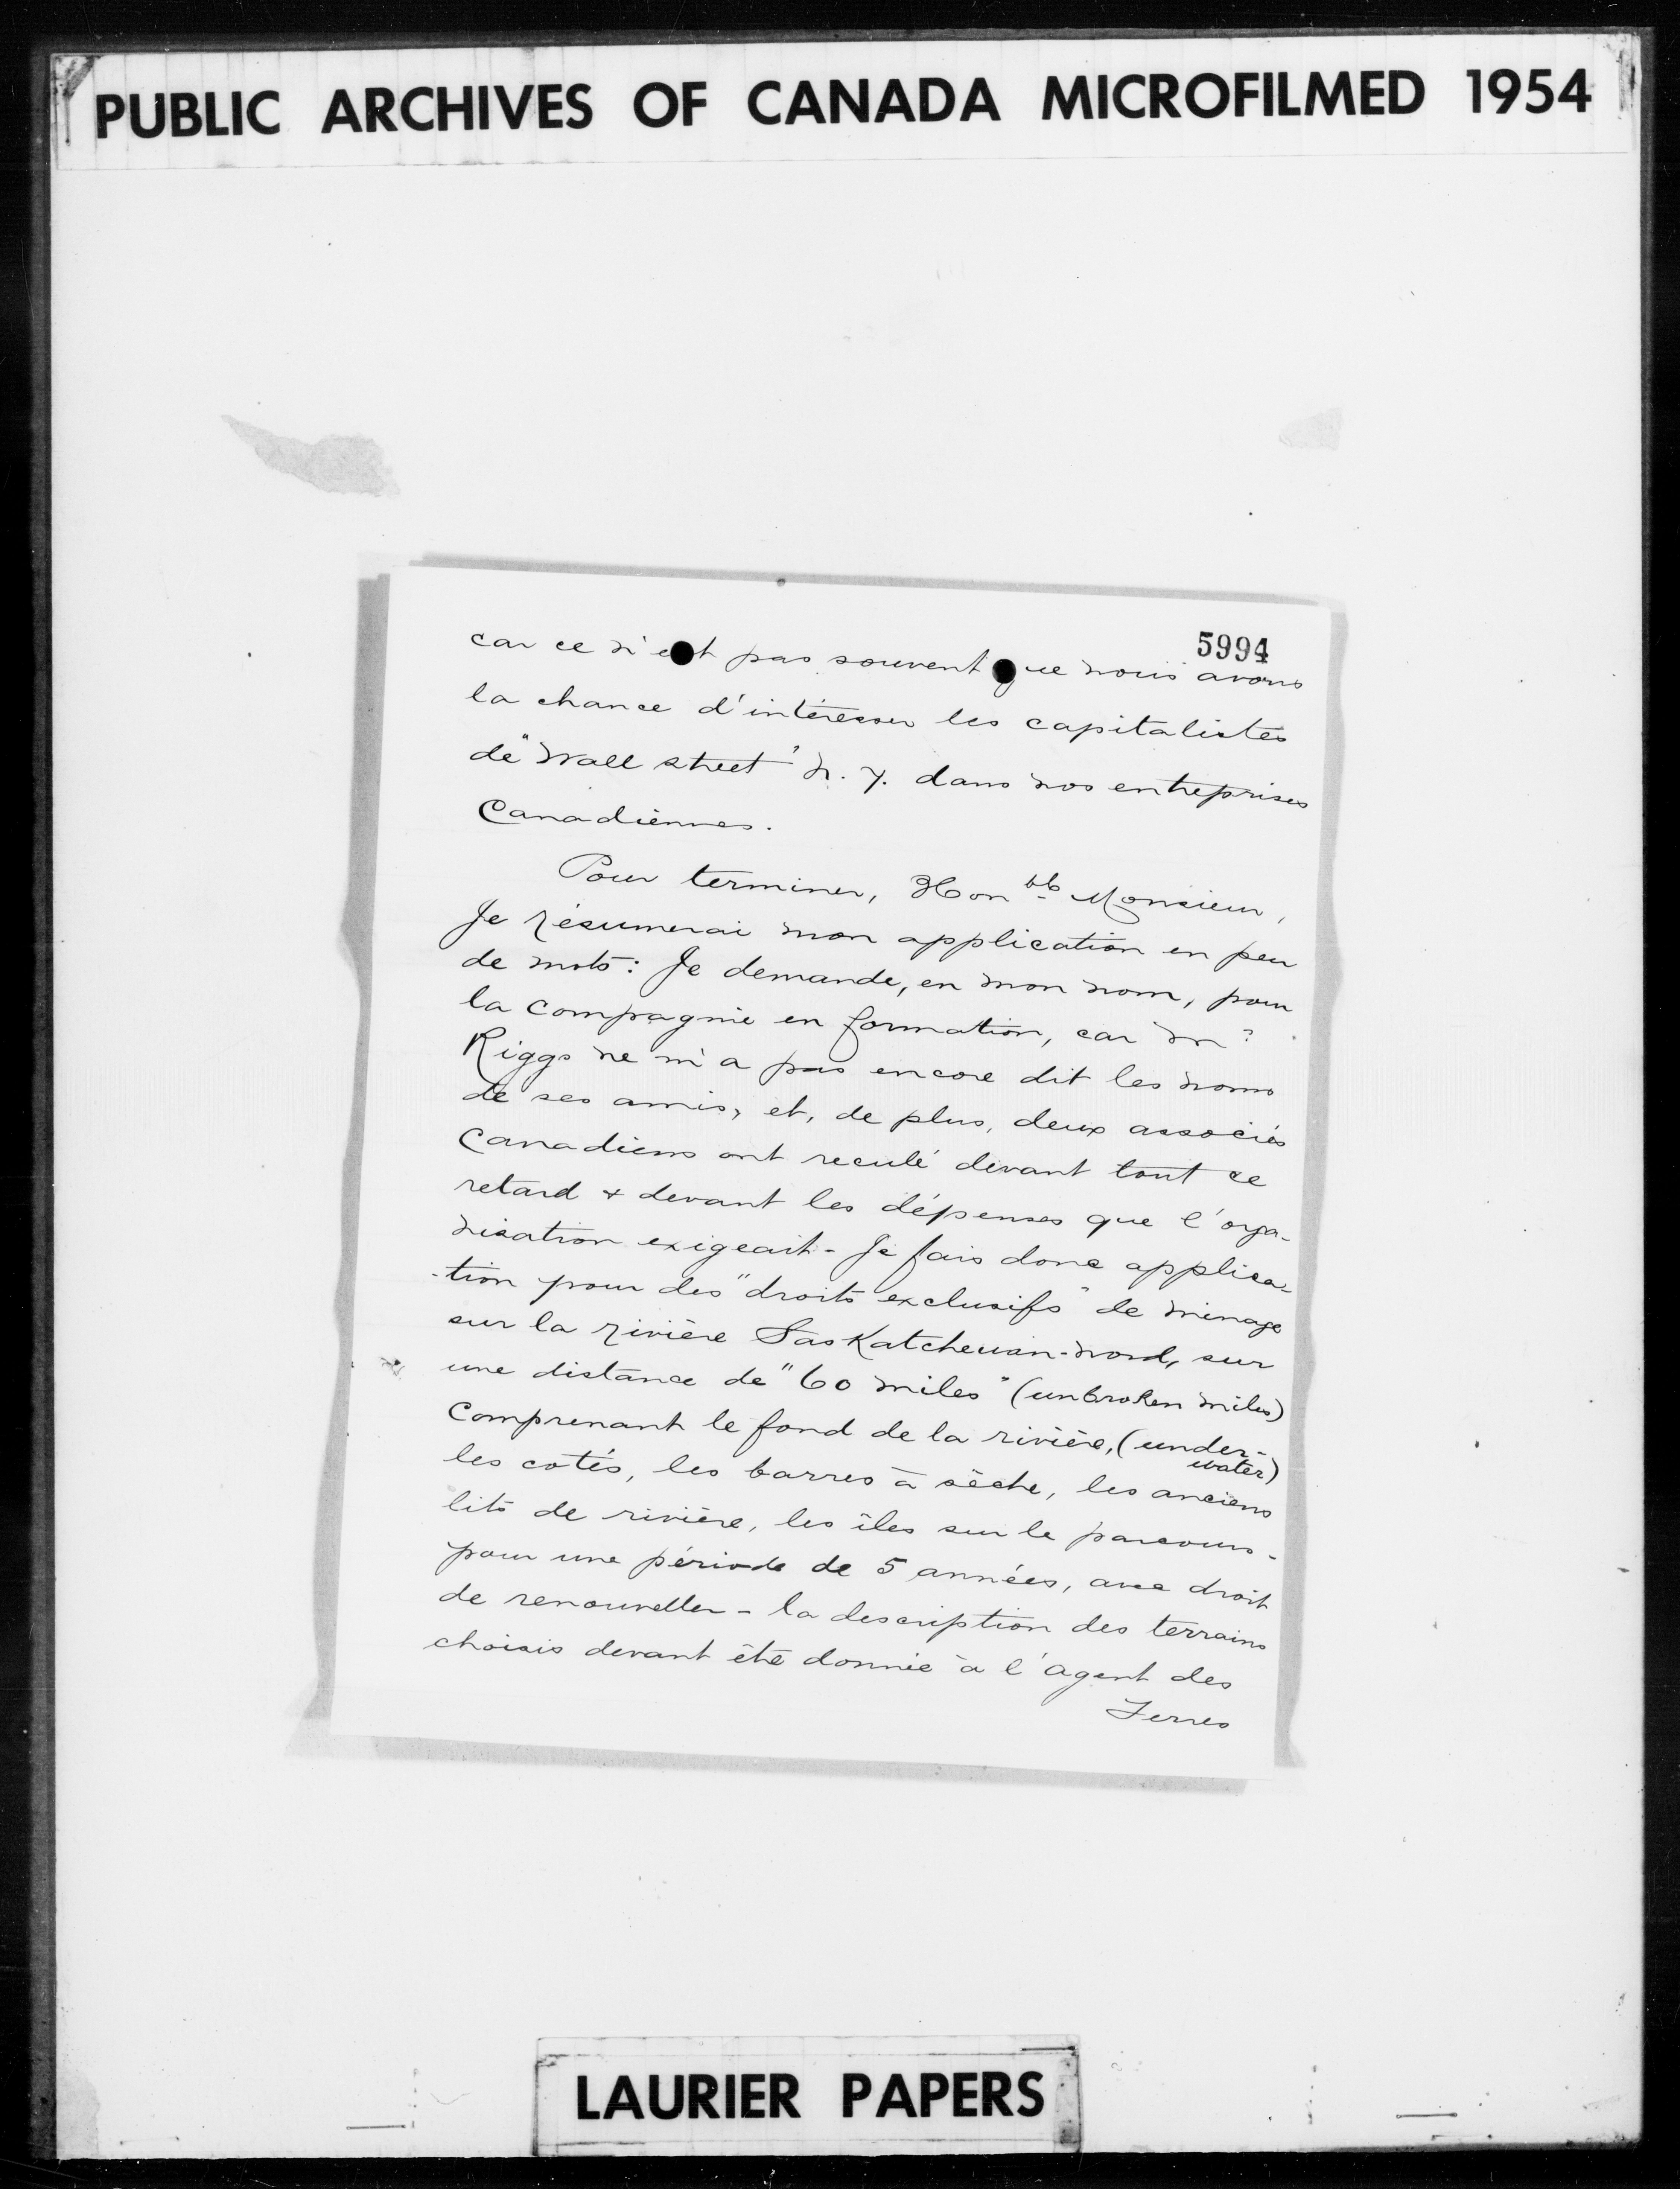 PUBLIC ARCHIVES OF CANADA MICROFILMED 1954
5994
car ce n'est pas souvent que nous avons
la chance d'intéresser les capitalistes
de "Wall street" N. Y. dans nos entreprises
Canadiennes.
Pour terminer, Honble Monsieur,
Je résumerai mon application en peu
de mots: Je demande, en mon nom, pour
la compagnie en formation, car Mr
Riggs ne m'a pas encore dit les noms
de ses amis, et, de plus, deux associés
Canadiens ont reculé devant tout ce
retard & devant les dépenses que l'orga-
nisation exigeait - Je fais donc applica-
-tion pour des "droits exclusifs" de minage
sur la rivière Saskatchewan-nord, sur
une distance de "60 miles" (unbroken miles)
comprenant le fond de la rivière, (under-
water)
les cotés, les barres à sèche, les anciens
lits de rivière, les îles sur le parcours -
pour une période de 5 années, avec droit
de renouveller - la description des terrains
choisis devant été donnée à l'agent des
Terres
LAURIER PAPERS